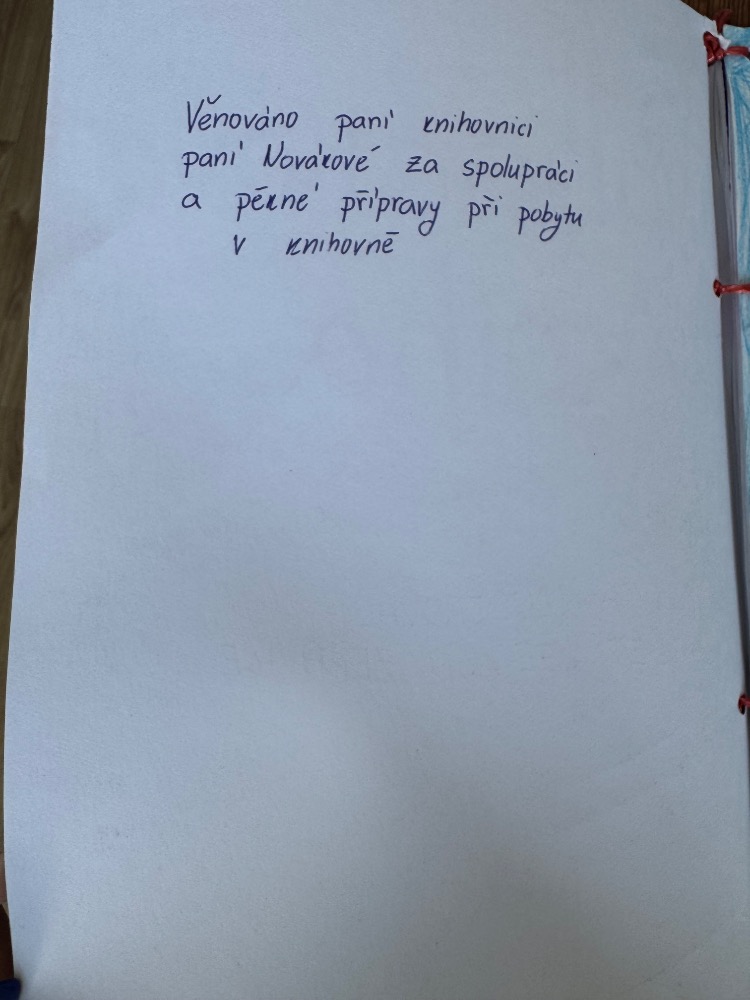 Věnováno paní knihovnici
paní Novákové za spolupráci
a pěkné přípravy při pobytu
v knihovně